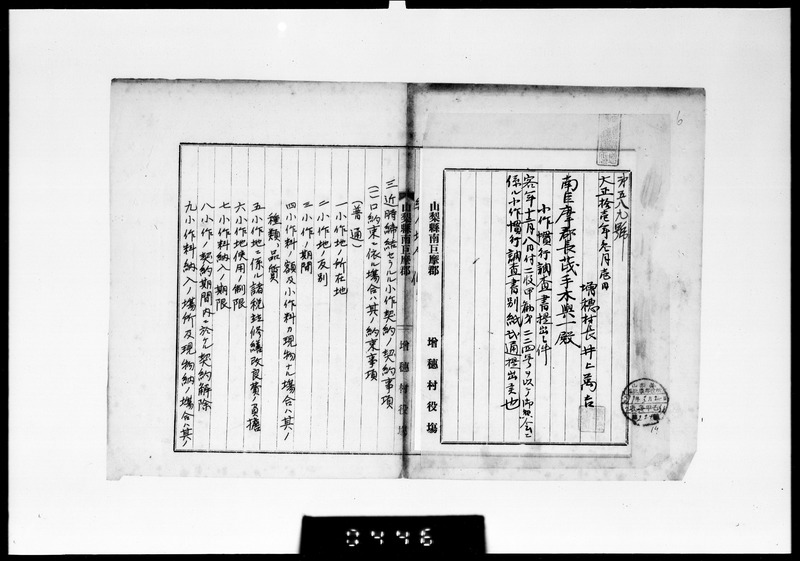 第五八九號
大正拾壱年参月壱日
増穂村長 井上萬吉
南巨摩郡長茂手木與一殿
小作慣行調査書提出ノ件
客年十二月八日付二収甲勧第二二四号ヲ以テ御照会ニ
係ル小作慣行調査書別紙弐通提出支也
山梨縣南巨摩郡 増穂村役場
山梨縣南巨摩郡 増穂村役場
三、近時締結セラルル小作契約ノ契約事項
(一)口約束ニ依ル場合ハ其ノ約束事項
(普通)
一小作地ノ所在地
二小作地ノ反別
三小作ノ期間
四小作料ノ額及小作料カ現物ナル場合ハ其ノ
種類、品質
五小作地ニ係ル諸税並修繕改良費ノ負擔
六小作地使用ノ制限
七小作料納入ノ期限
八小作ノ契約期間内ニ於ケル契約解除
九小作料納入ノ場所及現物納ノ場合ハ其ノ
6
0446